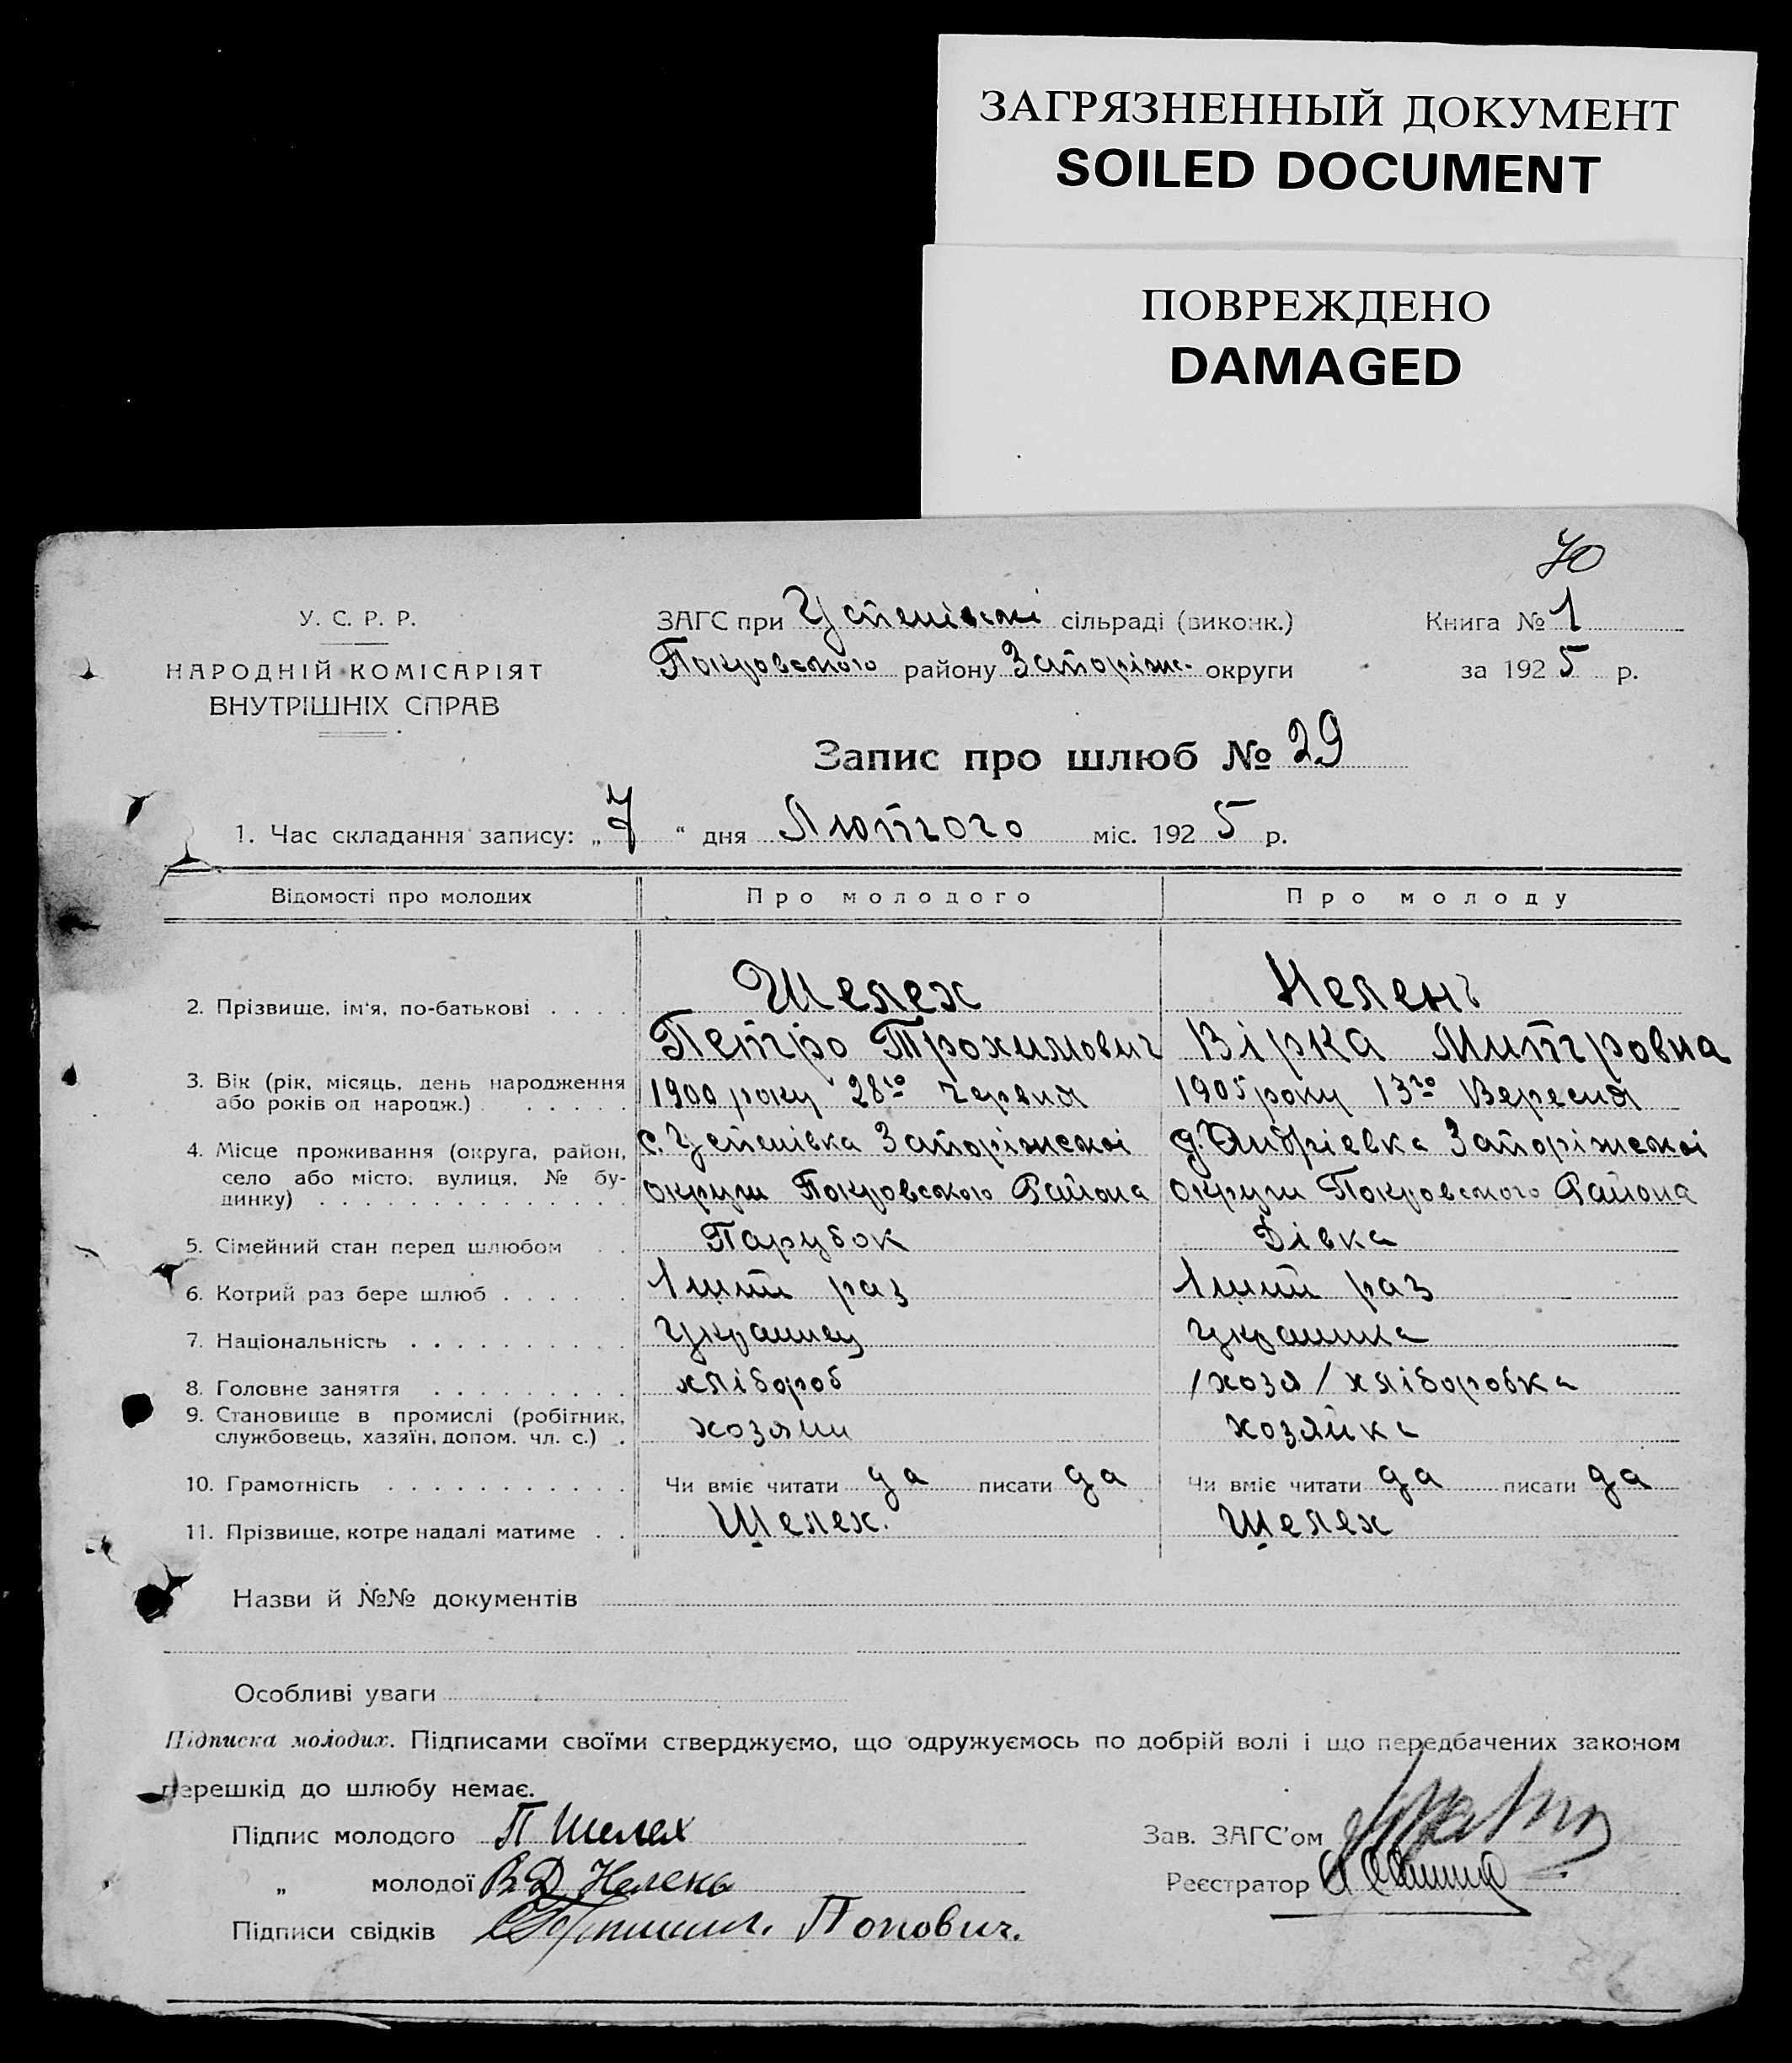 ЗАГРЯЗНЕННЫЙ ДОКУМЕНТ
SOILED DOCUMENT
ПОВРЕЖДЕНО
DAMAGED
70
У. С. Р. Р.
НАРОДНІЙ КОМІСАРІЯТ
ВНУТРІШНІХ СПРАВ
ЗАГС при Успенівскі сільраді (виконк.)
Покровського району Запоріж. округи
Книга № 1
за 1925 р.
Запис про шлюб № 29
1. Час складання запису: „7“ дня Лютого міс. 1925 р.
Відомості про молодих Про молодого Про молоду
2. Прізвище, ім'я, по-батькові . . . . Шелех Нелень
Петро Трохимович Вірка Митровна
3. Вік (рік, місяць, день народження
або років од народж.) . . . . . . 1900 року 28го червня 1905 року 13го Вересня
4. Місце проживання (округа, район, с. Успенівка Запоріжскоі д. Андріевка Запоріжскоі
село або місто, вулиця, № бу-
динку) . . . . . . . . . . . . . . округи Покровського Района округи Покровского Района
5. Сімейний стан перед шлюбом . . Парубок Дівка
6. Котрий раз бере шлюб . . . . . . 1ший раз 1ший раз
7. Національність . . . . . . . . . . Украинец Украинка
8. Головне заняття . . . . . . . . . хлібороб /хозя/ хліборобка
9. Становище в промислі (робітник,
службовець, хазяїн, допом. чл. с.) . хозяин хозяйка
10. Грамотність . . . . . . . . . . . Чи вміє читати да писати да Чи вміє читати да писати да
11. Прізвище, котре надалі матиме . . Шелех. Шелех
Назви й №№ документів
Особливі уваги
Підписка молодих. Підписами своїми стверджуємо, що одружуємось по добрій волі і що передбачених законом
перешкід до шлюбу немає.
Підпис молодого П Шелех
Зав. ЗАГС'ом
„ молодої В Д Нелень
Реєстратор
Підписи свідків Попович.